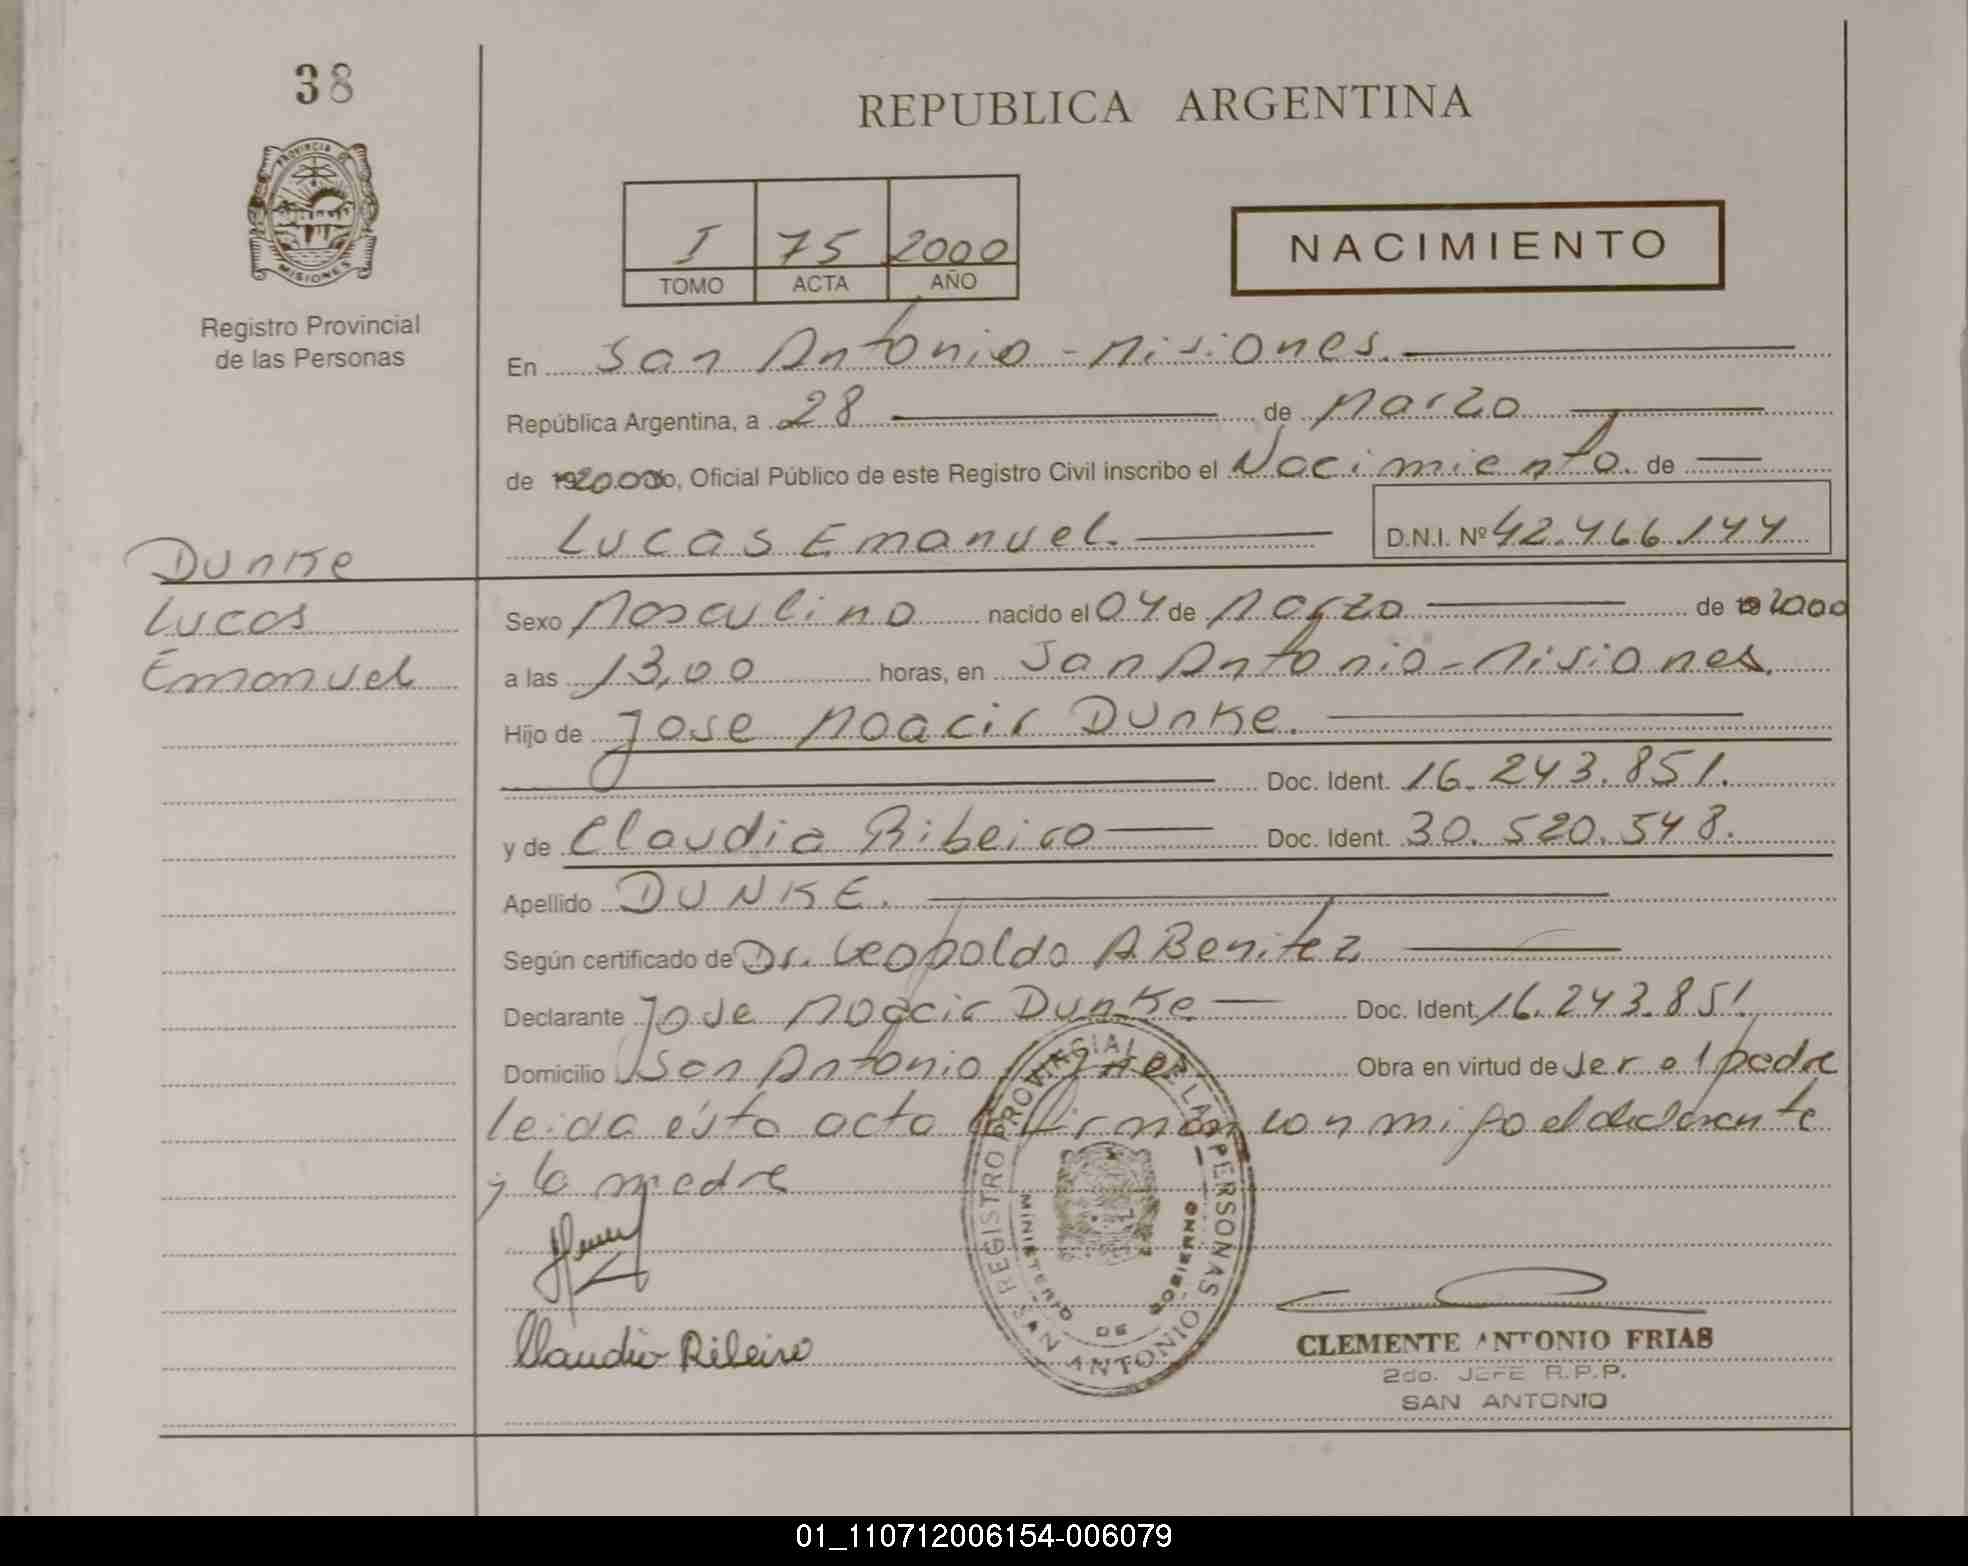 38
PROVINCIA DE
MISIONES
Registro Provincial
de las Personas
REPUBLICA ARGENTINA
I 75 2000
TOMO ACTA AÑO
NACIMIENTO
En San Antonio - Misiones.
República Argentina, a 28 de Marzo
de 2000, Oficial Público de este Registro Civil inscribo el Nacimiento. de
Lucas Emanuel. D.N.I. Nº 42.466.144
Dunke
Lucas
Emanuel
Sexo Masculino nacido el 04 de Marzo de 19 2000
a las 13,00 horas, en San Antonio - Misiones.
Hijo de Jose Moacir Dunke.
Doc. Ident. 16.243.851.
y de Claudia Ribeiro Doc. Ident. 30.520.548.
Apellido DUNKE.
Según certificado de Dr. Leopoldo A Benitez
Declarante Jose Moacir Dunke Doc. Ident. 16.243.851.
Domicilio San Antonio Obra en virtud de ser el padre
leida ésta acta firman con migo el declarante
y la madre
REGISTRO PROVINCIAL DE LAS PERSONAS
MINISTERIO DE GOBIERNO
SAN ANTONIO
Claudia Ribeiro
CLEMENTE ANTONIO FRIAS
2do. JEFE R.P.P.
SAN ANTONIO
01_110712006154-006079